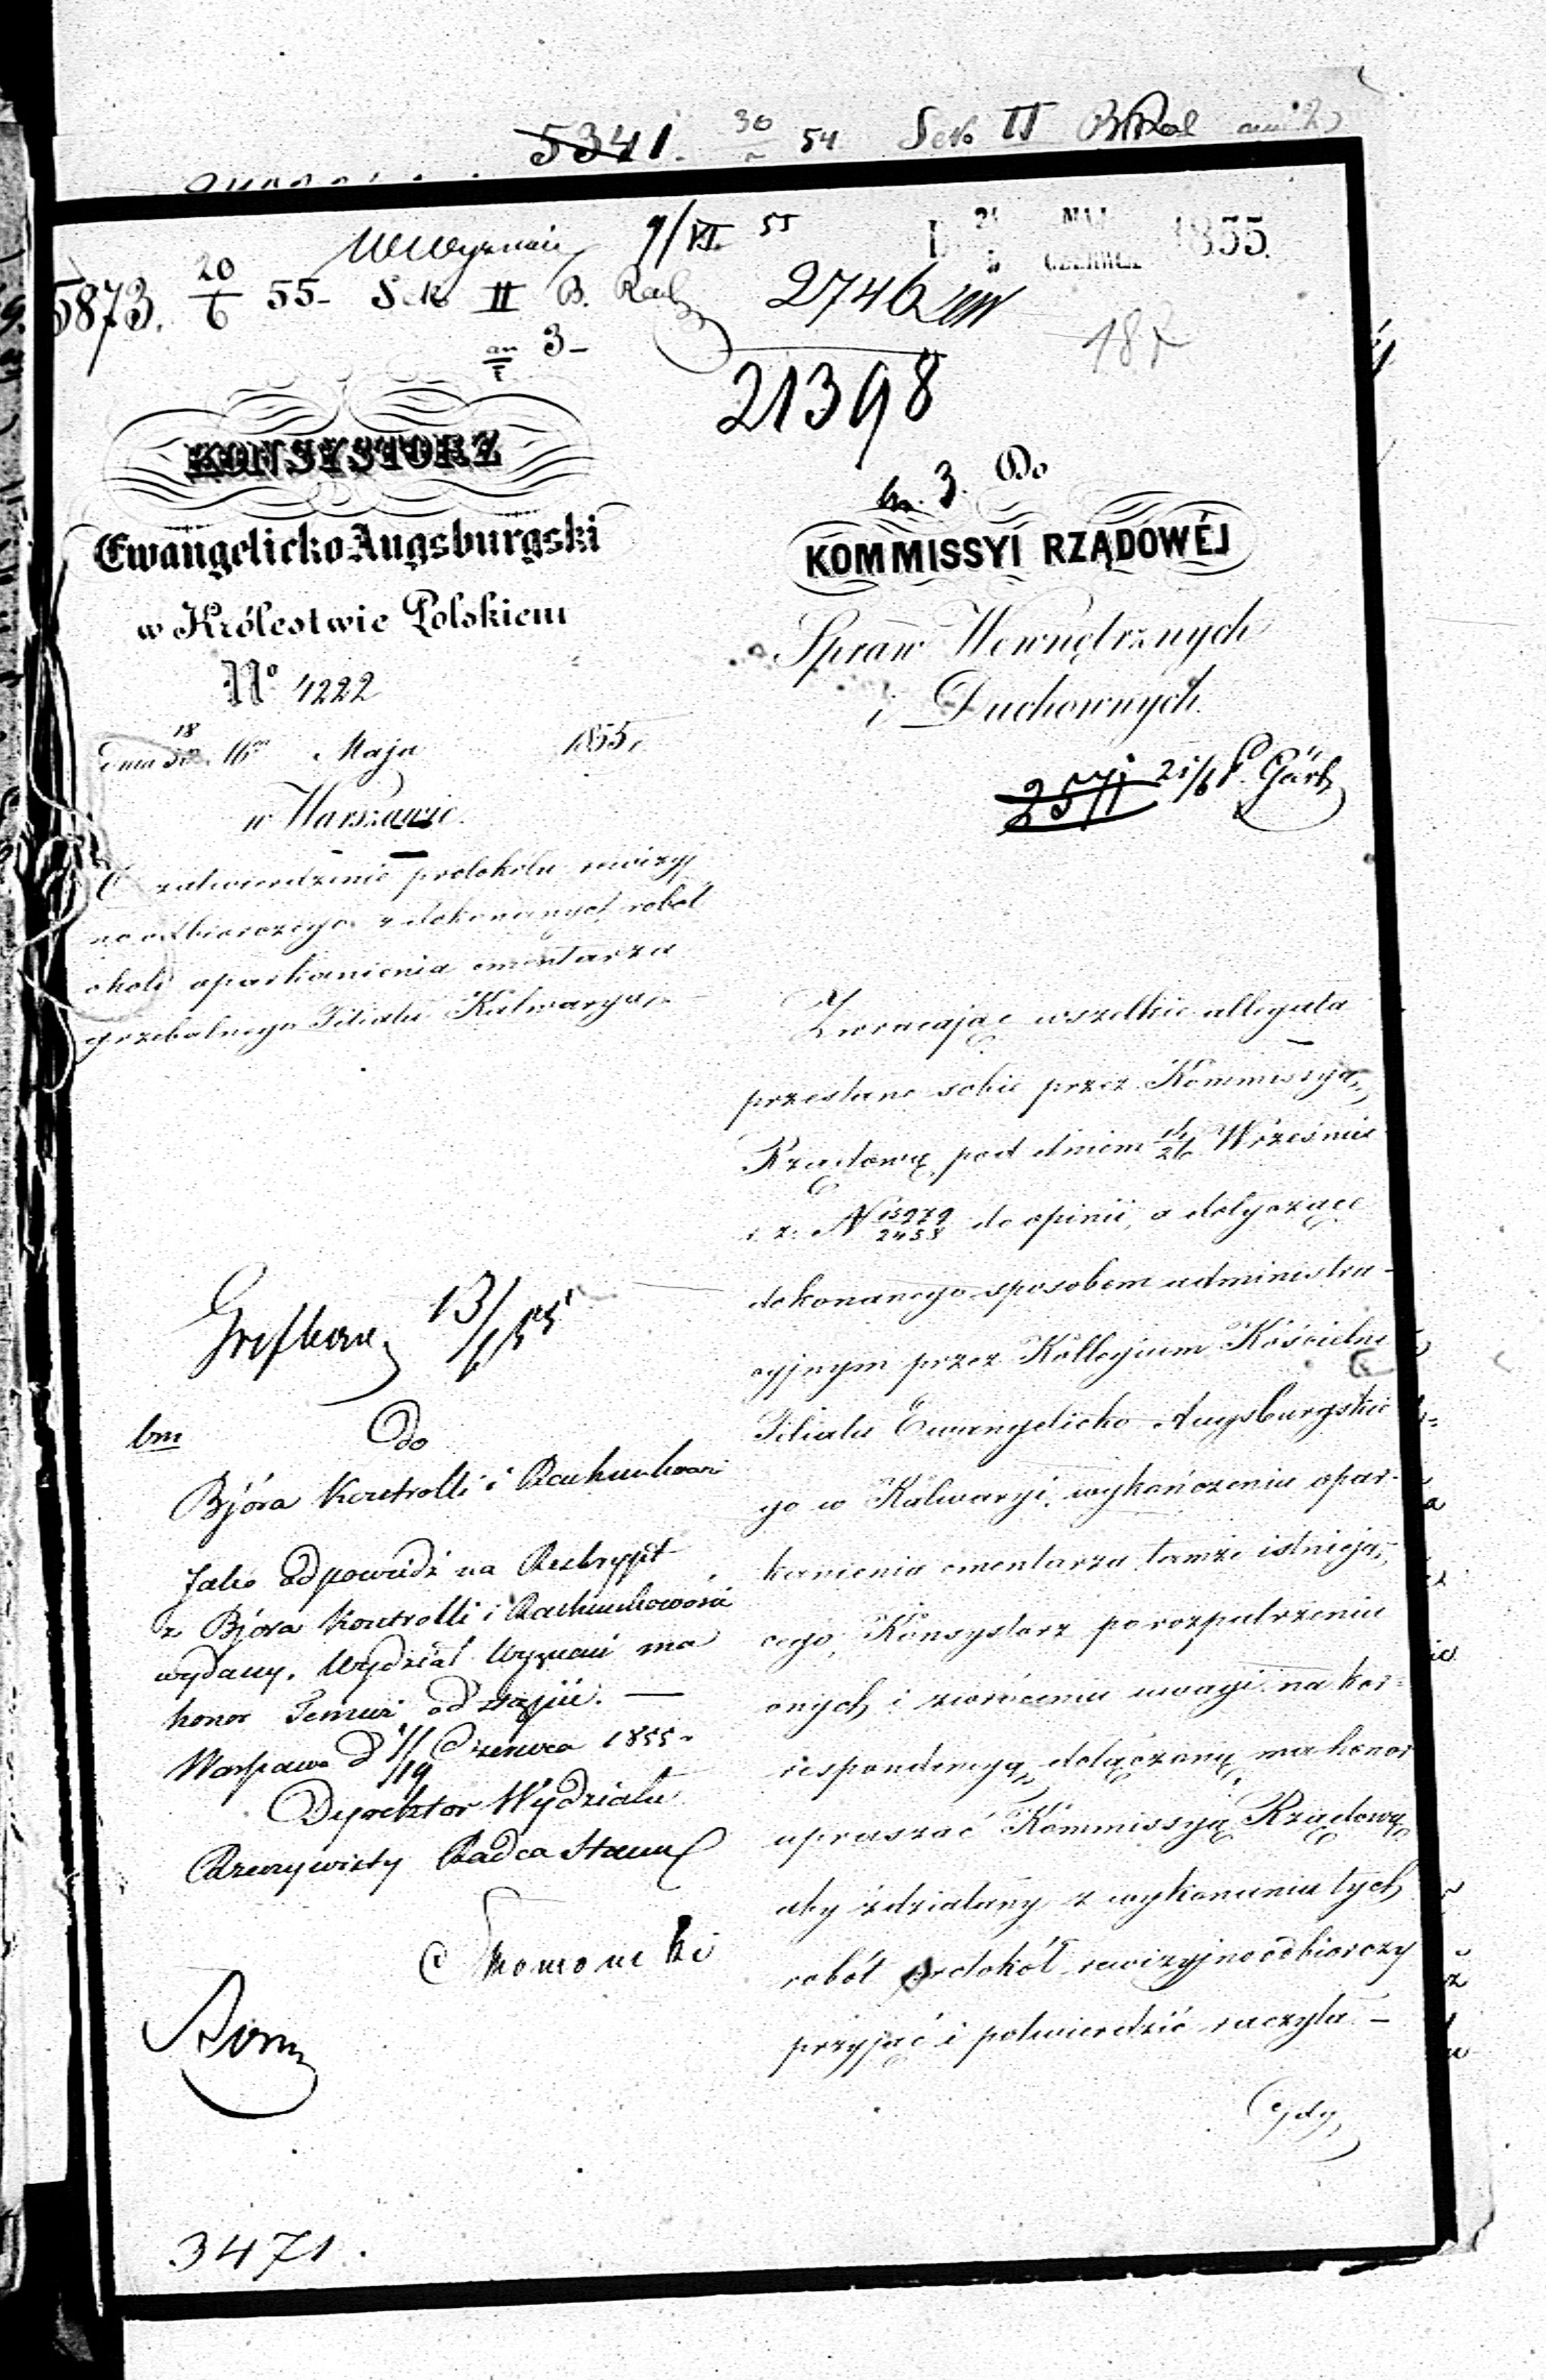 5341. 30 54 Sek II
W Wyznań 9/VI 55
D 24 MAJ 5 CZERWCA 1855.
5873. 20/6 55 - Sek II B. Rach
2746
3 -
187
21398
KONSYSTORZ
Ewangelicko Augsburgski
w Królestwie Polskiem
No 4222
dnia 18 Maja 1855 r.
w Warszawie.
O zatwierdzenie protokółu rewizyj
no odbiorczego z dokonanych robót
około oparkanienia cmentarza
grzebalnego Filiału Kalwarya.
3. Do
KOMMISSYI RZĄDOWÉJ
Spraw Wewnętrznych
i Duchownych.
2571 21/6 P. Gärt
Zwracając wszelkie allegata
przesłane sobie przez Kommissyą
Rządową pod dniem 14/26 Września
r. z. N 15979/2458 do opinii, a dotyczące
dokonanego sposobem administra-
cyjnym przez Kollegium Kościelne
Filiału Ewangelicko-Augsburgskie
go w Kalwaryi, wykończenia opar-
kanienia cmentarza tamże istnieją-
cego, Konsystorz po rozpatrzeniu
onych i zwróceniu uwagi na kor-
respondencyą dołączoną, ma honor
upraszać Kommissyą Rządową
aby zdziałany z wykonania tych
robót protokół rewizyjno odbiorczy
przyjąć i potwierdzić raczyła. -
Gdy
13/6 55
bm
Do
Bióra Kontrolli i Rachunkowości
Jako odpowiedź na Reskrypt
z Bióra Kontrolli i Rachunkowości
wydany, Wydział Wyznań ma
honor Temuż odstąpić. —
Warszawa d 7/19 Czerwca 1855.
Dyrektor Wydziału
Rzeczywisty Radca Stanu
3471.